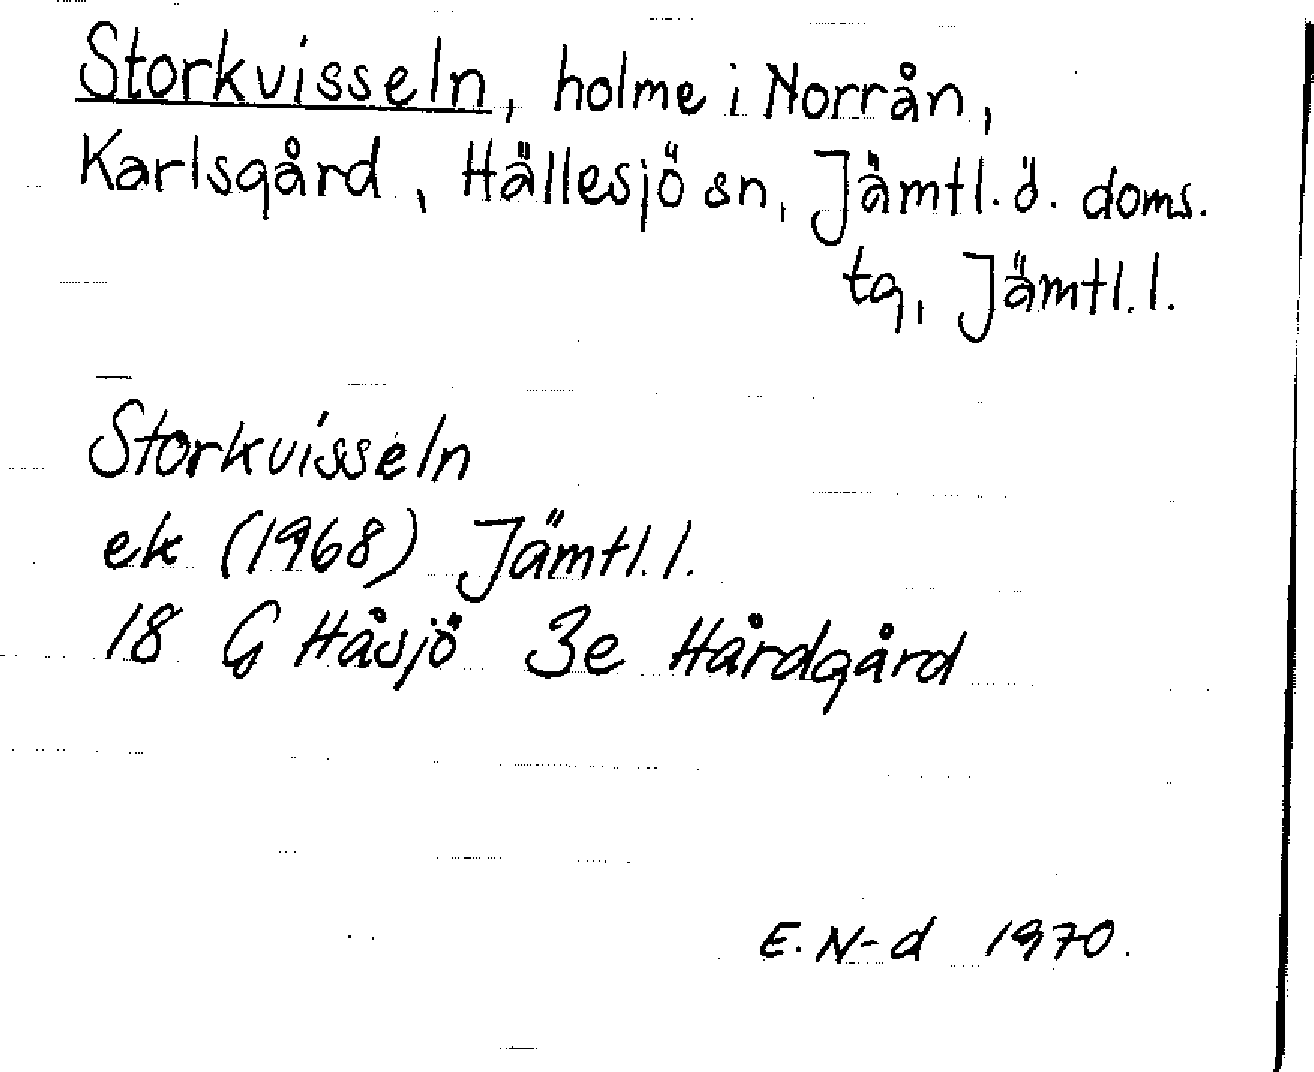 Storkvisseln, holme i Norrån,
Karlsgård, Hällesjö sn, Jämtl. ö. doms.
tg, Jämtl. l.
Storkvisseln
ek (1968) Jämtl. l.
18 G Håsjö 3e Hårdgård
E. N-d 1970.